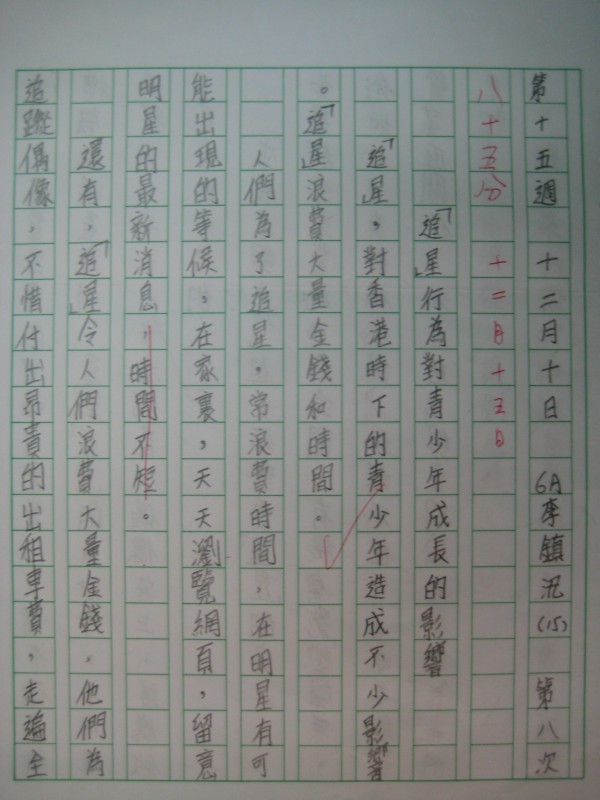 第十五週 十二月十日 6A李鎮汎(15) 第八次
八十五分 十二月十五日
「追星」行為對青少年成長的影響
「追星」,對香港時下的青少年造成不少影響
。「追星」浪費大量金錢和時間。
人們為了追星,常浪費時間,在明星有可
能出現的等候,在家裏,天天瀏覽網頁,留意
明星的最新消息,時間不短。
還有,「追星」令人們浪費大量金錢,他們為
追蹤偶像,不惜付出昂貴的出租車費,走遍全